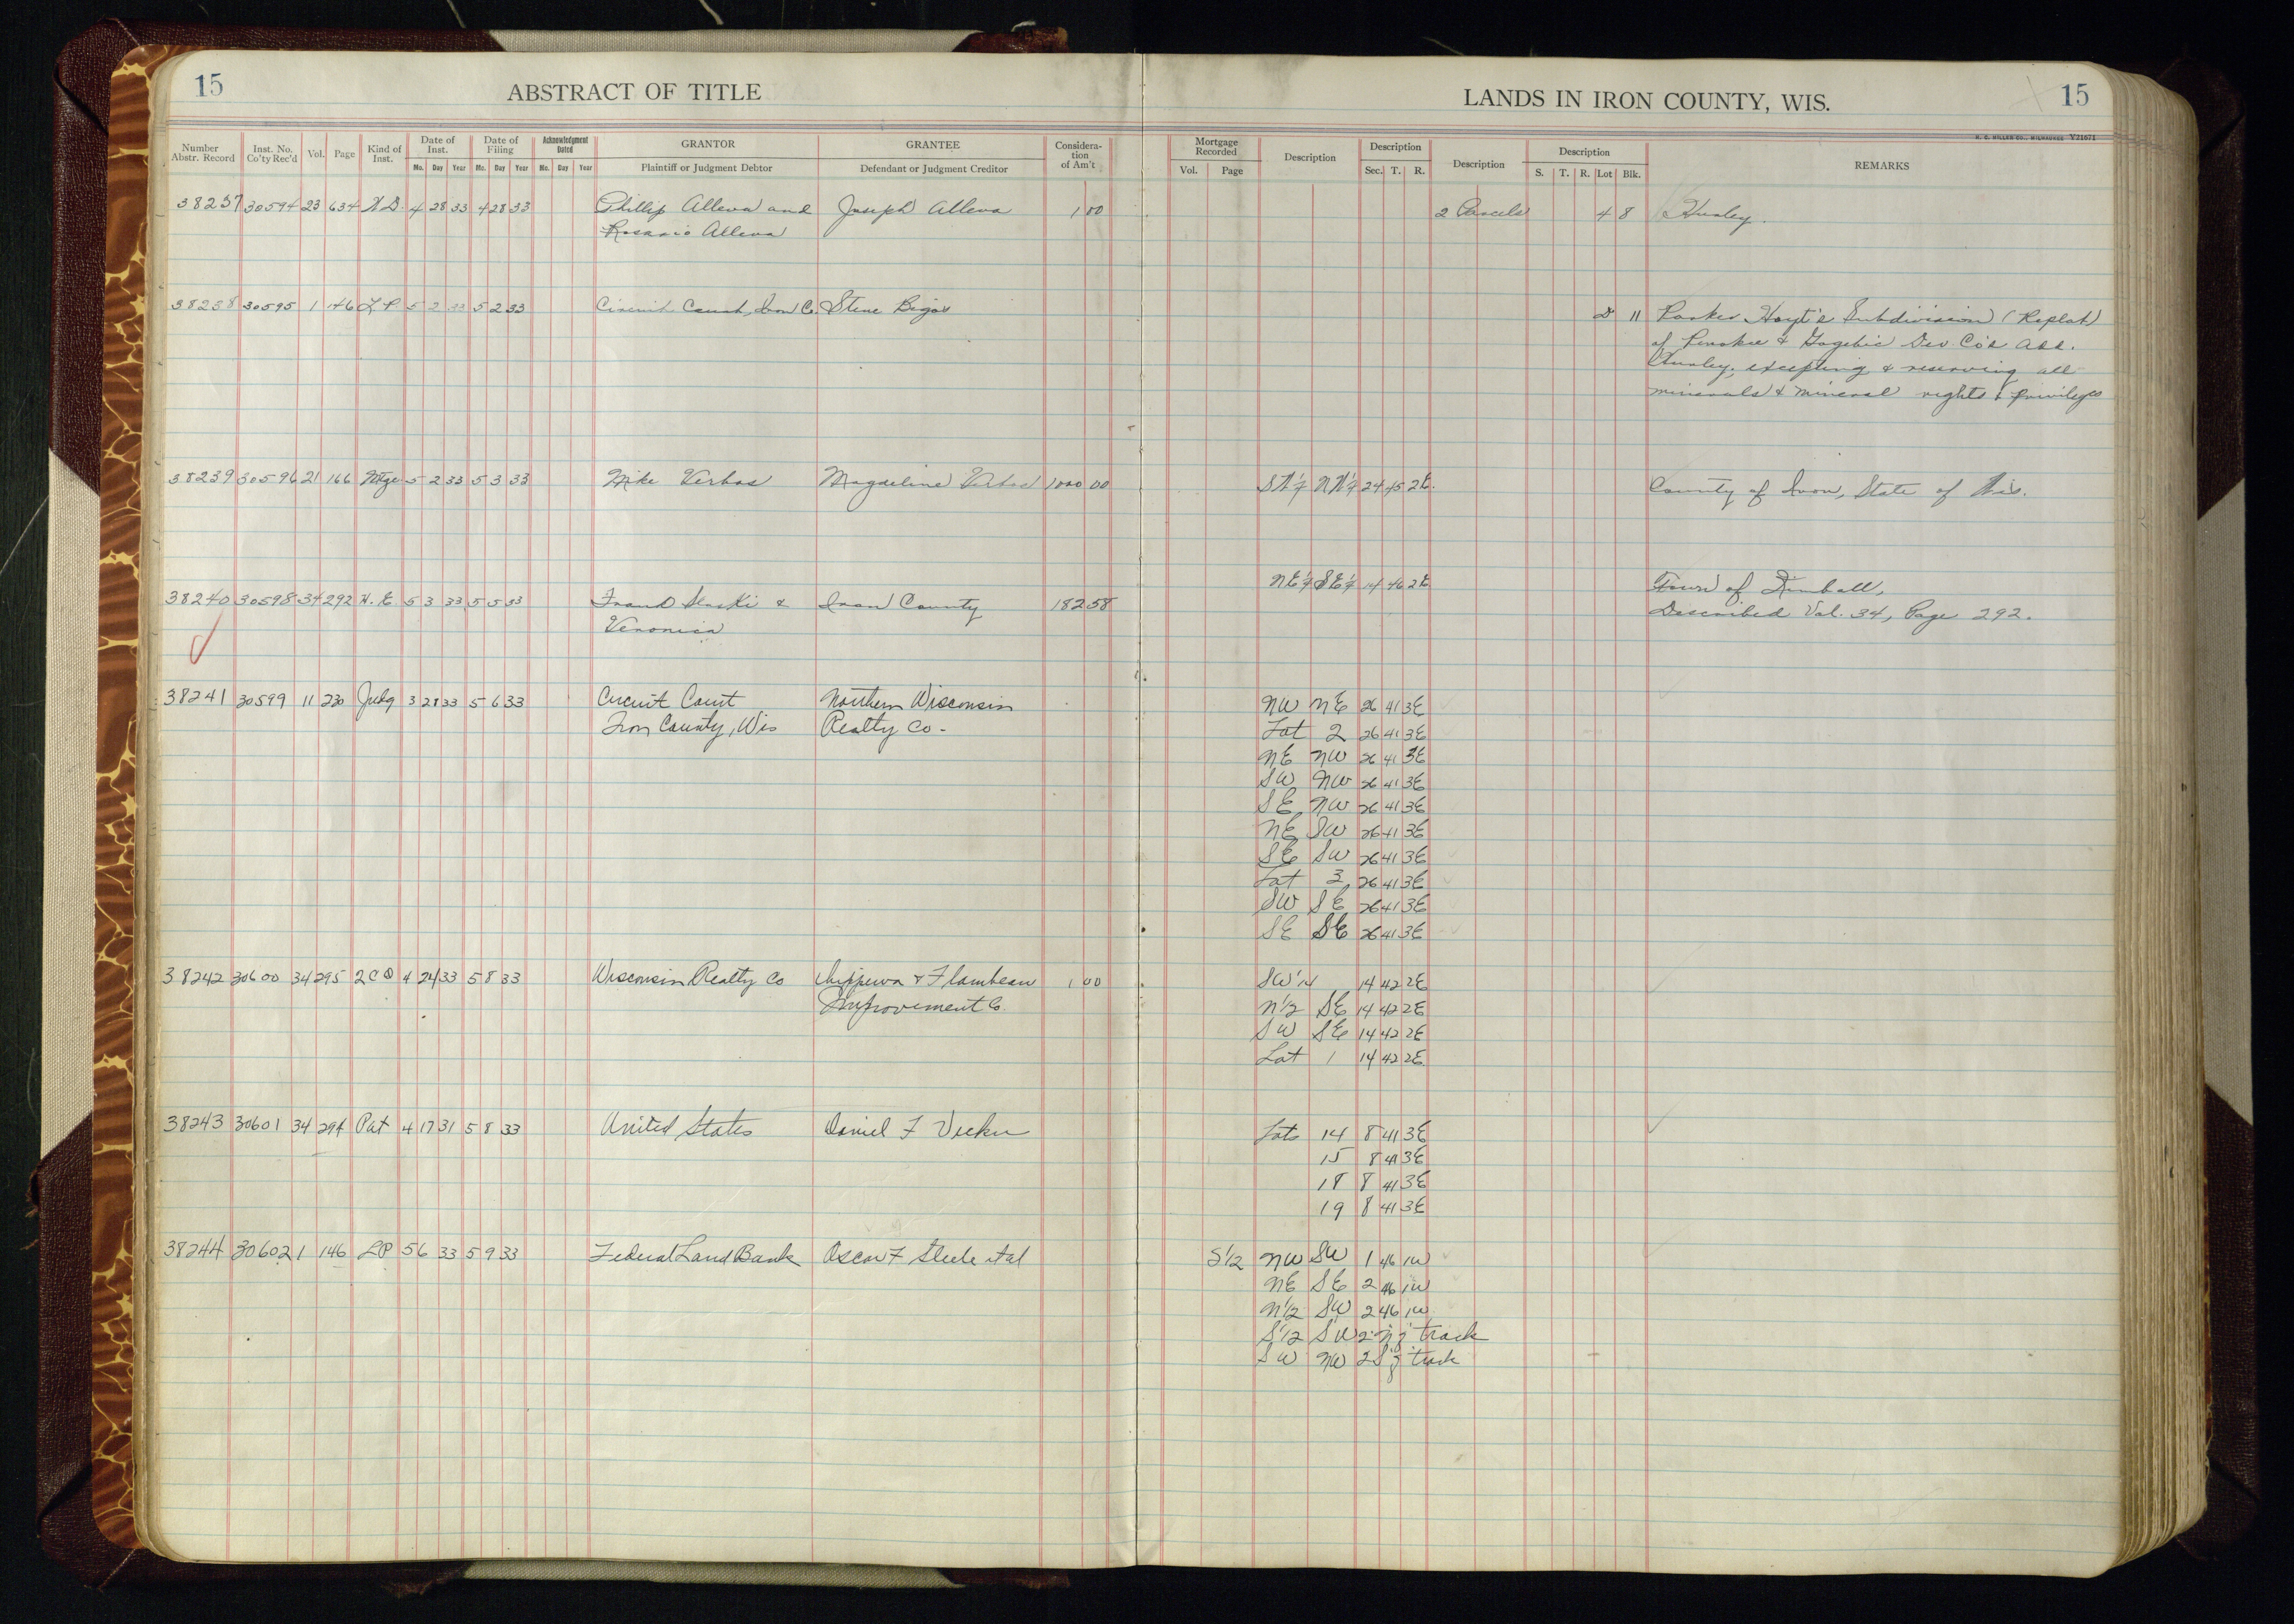 15
ABSTRACT OF TITLE
LANDS IN IRON COUNTY, WIS.
15
H. C. MILLER CO., MILWAUKEE V21671
Number Abstr. Record Inst. No. Co'ty Rec'd Vol. Page Kind of Inst. Date of Inst. Mo. Day Year Date of Filing Mo. Day Year Acknowledgment Dated Mo. Day Year GRANTOR Plaintiff or Judgment Debtor GRANTEE Defendant or Judgment Creditor Considera-tion of Am't Mortgage Recorded Vol. Page Description Description Sec. T. R. Description Description S. T. R. Lot Blk. REMARKS
38237 30594 23 634 W.D. 4 28 33 4 28 33 Phillip Alleva and Joseph Alleva 1 00 2 Parcels 4 8 Hurley.
Rosario Alleva
38238 30595 1 146 L P 5 2 33 5 2 33 Circuit Court, Iron Co. Steve Bigos 11 Parker Hoyt's Subdivision (Replat)
of Penokee & Gogebic Dev. Co's Add.
Hurley, excepting & reserving all
minerals & mineral rights & privileges
38239 30596 21 166 Mtge 5 2 33 5 3 33 Mike Verbos Magdeline Verbos 1000 00 SW¼ NW¼ 24 45 2E. County of Iron, State of Wis.
NE¼ SE¼ 14 46 2E Town of Kimball,
38240 30598 34 292 5 3 33 5 5 33 Frank & Iron County 182 58 Described Vol. 34, Page 292.
Veronica
38241 30599 11 230 Judg 3 28 33 5 6 33 Circuit Court Northern Wisconsin NW NE 26 41 3E
Iron County, Wis Realty Co. Lot 2 26 41 3E
NE NW 26 41 3E
SW NW 26 41 3E
SE NW 26 41 3E
NE SW 26 41 3E
SE SW 26 41 3E
Lot 3 26 41 3E
SW SE 26 41 3E
SE SE 26 41 3E
38242 30600 34 295 2CD 4 24 33 5 8 33 Wisconsin Realty Co Chippewa & Flambeau 1 00 SW¼ 14 42 2E
Improvement Co. N½ SE 14 42 2E
SW SE 14 42 2E
Lot 1 14 42 2E
38243 30601 34 294 Pat 4 17 31 5 8 33 United States Daniel F Lots 14 8 41 3E
15 8 41 3E
18 8 41 3E
19 8 41 3E
38244 30602 1 146 LP 5 6 33 5 9 33 Federal Land Bank Oscar F Steele et al S½ NW SW 1 46 1W
NE SE 2 46 1W
N½ SW 2 46 1W
S½ SW 2 N of track
SW NW 2 S of track